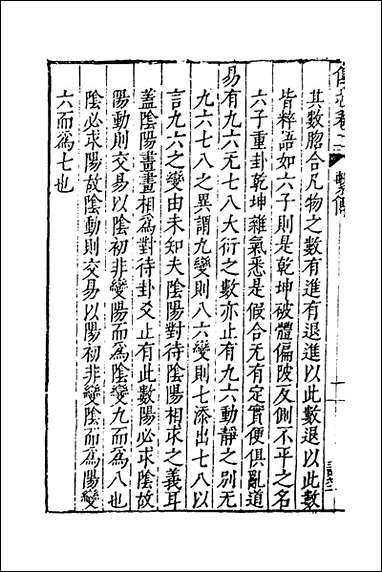 其數脗合凡物之數有進有退進以此數退以此數
皆粹語如六子則是乾坤破體偏陂反側不平之名
六子重卦乾坤雜氣悉是假合无有定實便俱亂道
易有九六无七八大衍之數亦止有九六動靜之別无
九六七八之異謂九變則八六變則七添出七八以
言九六之變由未知夫陰陽對待陰陽相求之義耳
蓋陰陽畫畫相爲對待卦爻止有此數陽必求陰故
陽動則交易以陰初非變陽而爲陰變九而爲八也
陰必求陽故陰動則交易以陽初非變陰而爲陽變
六而爲七也